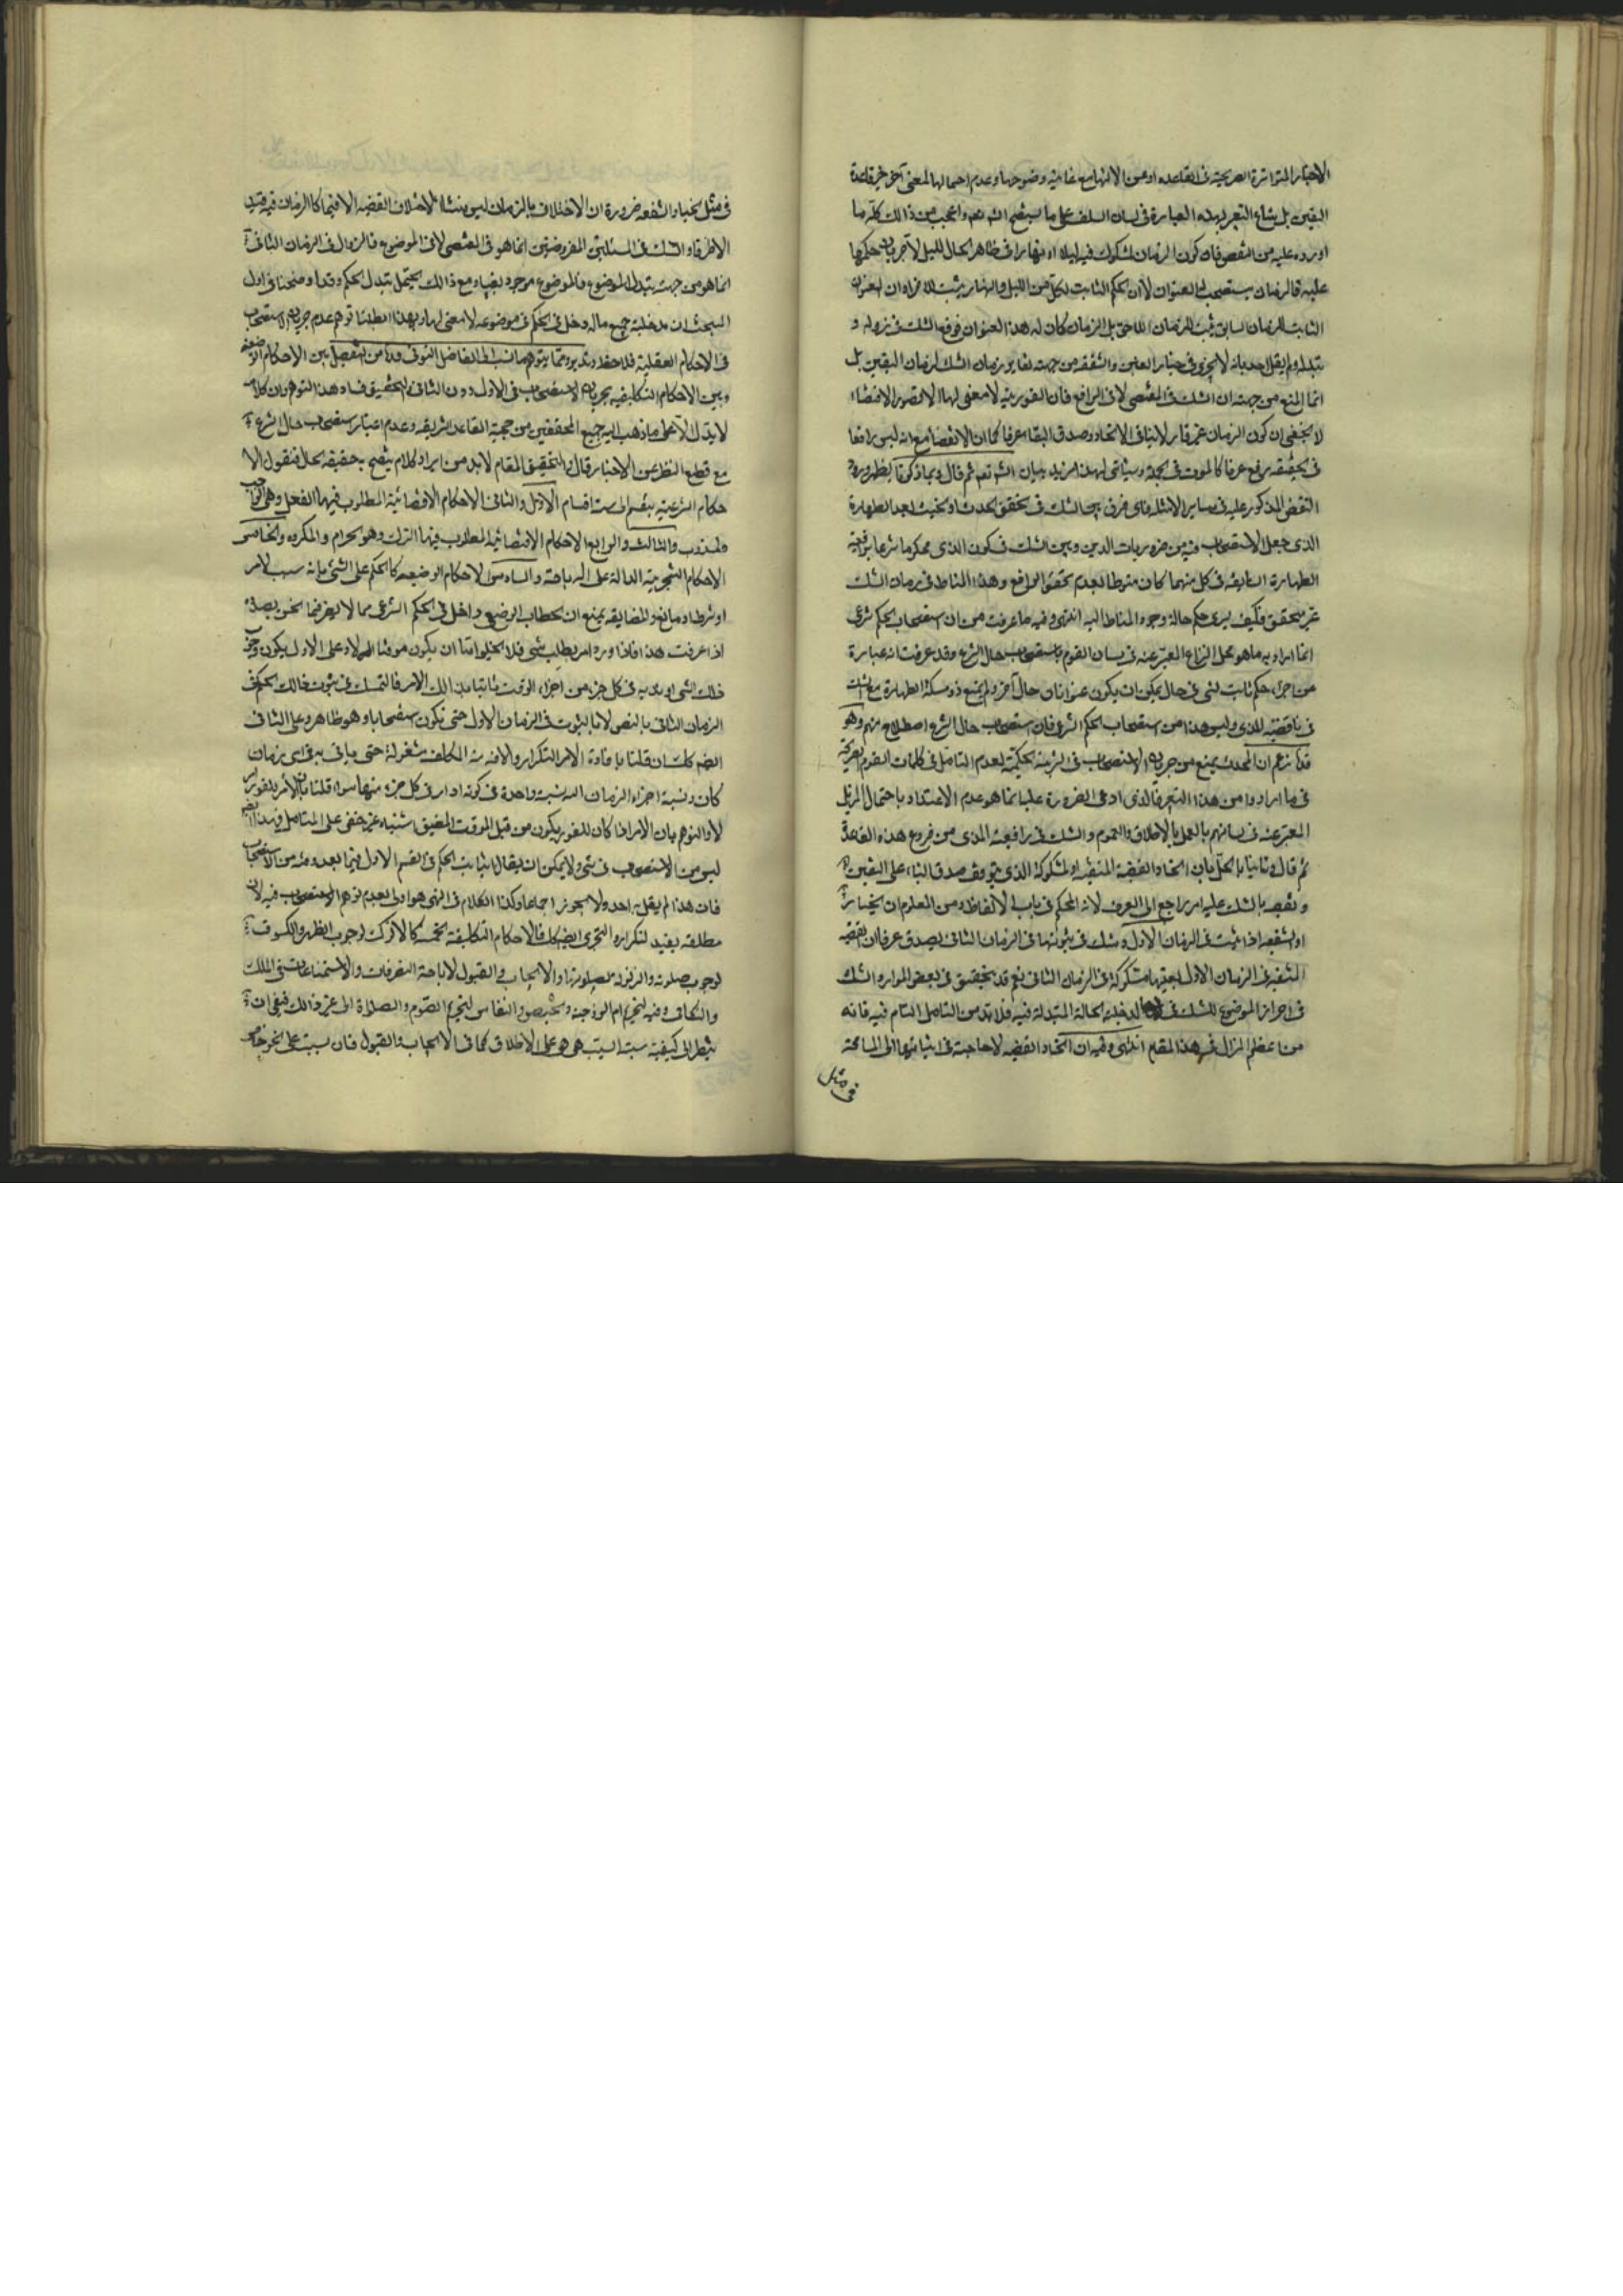 الاخبار المتواترة الصريحة في القاعدة او عن الانها مع غاية وضوحها وعدم احتمالها لمعنى آخر غير قاعدة
اليقين بل شاع التعبير بهذه العبارة في لسان السلف على ما سيتضح انشاء الله واعجب من ذالك كله ما
اورده عليه من النقض فان كون الزمان المشكوك فيه ليلا او نهارا في ظاهر الحال لليل لآجريان حكمها
عليه فالزمان يستصحب له العنوان لا ان الحكم الثابت لكل من الليل والنهار يثبت
الثابت للزمان السابق يثبت للزمان اللاحق بل الزمان كان له هذا العنوان فوقع الشك في زواله و
تبدله ولم يقل احد بانه لا يجري في خيار الغبن والشفعة من جهة تغاير زمان الشك لزمان اليقين بل
انما المنع من جهة ان الشك في المقتضى لا في الرافع فان الفورية لا معنى لها الا قصور الاقتضاء
لا يخفى ان كون الزمان غير قار لا ينافي الاتحاد وصدق البقاء عرفا كما ان الانقضاء مع انه ليس رافعا
في الحقيقة يرفع عرفا كالموت في الجملة وسيأتي لهذا مزيد بيان انشاء الله تعالى ثم قال وبما ذكرنا يظهر ورود
النقض المذكور عليه في ساير الامثلة فاى فرق بين الشك في تحقق الحدث او الخبث بعد الطهارة
الذى جعل الاستصحاب فيه من ضروريات الدين وبين الشك في كون المذى محكوما شرعا برافعية
الطهارة السابقة في كل منهما كان منوطا بعدم تحقق الرافع وهذا المناط في زمان الشك
غير متحقق فكيف يسرى حكم حالة وجود المناط اليه انتهى وفيه ما عرفت من ان استصحاب الحكم شرعى
انما اراد به ما هو محل النزاع المعبر عنه في لسان القوم باستصحاب حال الشرع وقد عرفت انه عبارة
من اجراء حكم ثابت لشى في حال يمكن ان يكون عنوانا في حال آخر ولم يمنع ذو مسكة الطهارة مع الشك
في ناقضية المذى وليس هذا من استصحاب الحكم الشرعى فان استصحاب حال الشرع اصطلاح منهم وهو
قد زعم ان المحدث يمنع من جريان الاستصحاب في الشبهة الحكمية لعدم التامل في كلمات القوم الصريحة
في ما ارادوا من هذا التعبير فالذى ادعى الضرورة عليه انما هو عدم الاعتداد باحتمال المزيل
المعبر عنه في لسانهم بالعمل بالاطلاق والعموم والشك في رافعية المذى من فروع هذه القاعدة
ثم قال وثانيا بالحل بان اتحاد القضية المتيقنة والمشكوكة الذى يتوقف صدق البناء على اليقين
ونقضه بالشك عليه امر راجع الى العرف لانه المحكم في باب الالفاظ ومن المعلوم ان الخيار
او الشفعة اذا ثبت في الزمان الاول وشك في ثبوتها في الزمان الثاني يصدق عرفا ان القضية
المتيقنة في الزمان الاول بعينها مشكوكة في الزمان الثاني نعم قد يتحقق في بعض الموارد الشك
في احراز الموضوع للشك في مدخلية الحالة المتبدلة فيه فلا بد من التامل التام فيه فانه
من اعظم المزال في هذا المقام انتهى وفيه ان اتحاد القضية لا حاجة في اثباتها الى المسامحة
في مثل
في مثل الخيار والشفعة ضرورة ان الاختلاف بالزمان ليس منشاء لاختلاف القضية الا فيما كان الزمان فيه قيدا
الا ظرفا والشك في المسئلتين المفروضتين انما هو في المقتضى لا في الموضوع فالزوال في الزمان الثاني
انما هو من جهة تبدل الموضوع فالموضوع موجود بقينا ومع ذالك يحتمل تبدل الحكم وقد اوضحنا في اول
البحث ان مدخلية جميع ماله دخل في الحكم في موضوعه لا معنى لها وبهذا ابطلنا توهم عدم جريان الاستصحاب
في الاحكام العقلية فلاحظ وتدبر ومما يتوهم ما نسب الى الفاضل التونى قده من التفصيل بين الاحكام الوضعية
وبين الاحكام التكليفية بجريان الاستصحاب في الاول دون الثاني والتحقيق فساد هذا التوهم وان كلامه
لا يدل الا على ما ذهب اليه جميع المحققين من حجية القاعدة الشريفة وعدم اعتبار استصحاب حال الشرع
مع قطع النظر عن الاخبار قال والتحقيق المقام لابد من ايراد كلام يتضح به حقيقة الحال فنقول الا
حكام الشرعية ينقسم الى ستة اقسام الاول والثاني الاحكام الاقتضائية المطلوب فيها الفعل وهى الواجب
والمندوب والثالث والرابع الاحكام الاقتضائية المطلوب فيها الترك وهو الحرام والمكروه والخامس
الاحكام التخييرية الدالة على الاباحة والسادس الاحكام الوضعية كالحكم على الشئ بانه سبب لامر
او شرط او مانع والمضايقة بمنع ان الخطاب الوضعى داخل في الحكم الشرعى مما لا يضر فيما نحن بصدده
اذا عرفت هذا فاذا ورد امر بطلب شئ فلا يخلو اما ان يكون موقتا ام لا وعلى الاول يكون وجوب
ذلك الشى او ندبه في كل جزء من اجزاء الوقت ثابتا بذالك الامر فالتمسك في ثبوت ذالك الحكم في
الزمان الثاني بالنص لا بالثبوت في الزمان الاول حتى يكون استصحابا وهو ظاهر وعلى الثاني
ايضا كذلك ان قلنا بافادة الامر التكرار والا فذمة المكلف مشغولة حتى ياتى به في اى زمان
كان ونسبة اجزاء الزمان اليه نسبة واحدة في كونه اداء في كل جزء منها سواء قلنا بان الامر للفور ام
لا والتوهم بان الامر اذا كان للفور يكون من قبيل الموقت المضيق اشتباه غير خفى على المتامل فهذا ايضا
ليس من الاستصحاب في شئ ولا يمكن ان يقال بان اثبات الحكم في القسم الاول فيما بعد وقته من الاستصحاب
فان هذا لم يقل به احد ولا يجوز اجماعا وكذا الكلام في النهى هو اولى بعدم توهم الاستصحاب فيه لان
مطلقه يفيد التكرار والتخيرى ايضا كذلك فالاحكام التكليفية الخمسة كالدلوك لوجوب الظهر والكسوف
لوجوب صلوته والزلزلة لصلوتها والايجاب والقبول لاباحة التصرفات والاستمتاعات في الملك
والنكاح وفيه لتحريم ام الزوجة والحيض والنفاس لتحريم الصوم والصلاة الى غير ذالك فينبغى ان
ينظر الى كيفية سببية السبب هل هى على الاطلاق كما في الايجاب والقبول فان سببيته على نحو خاص